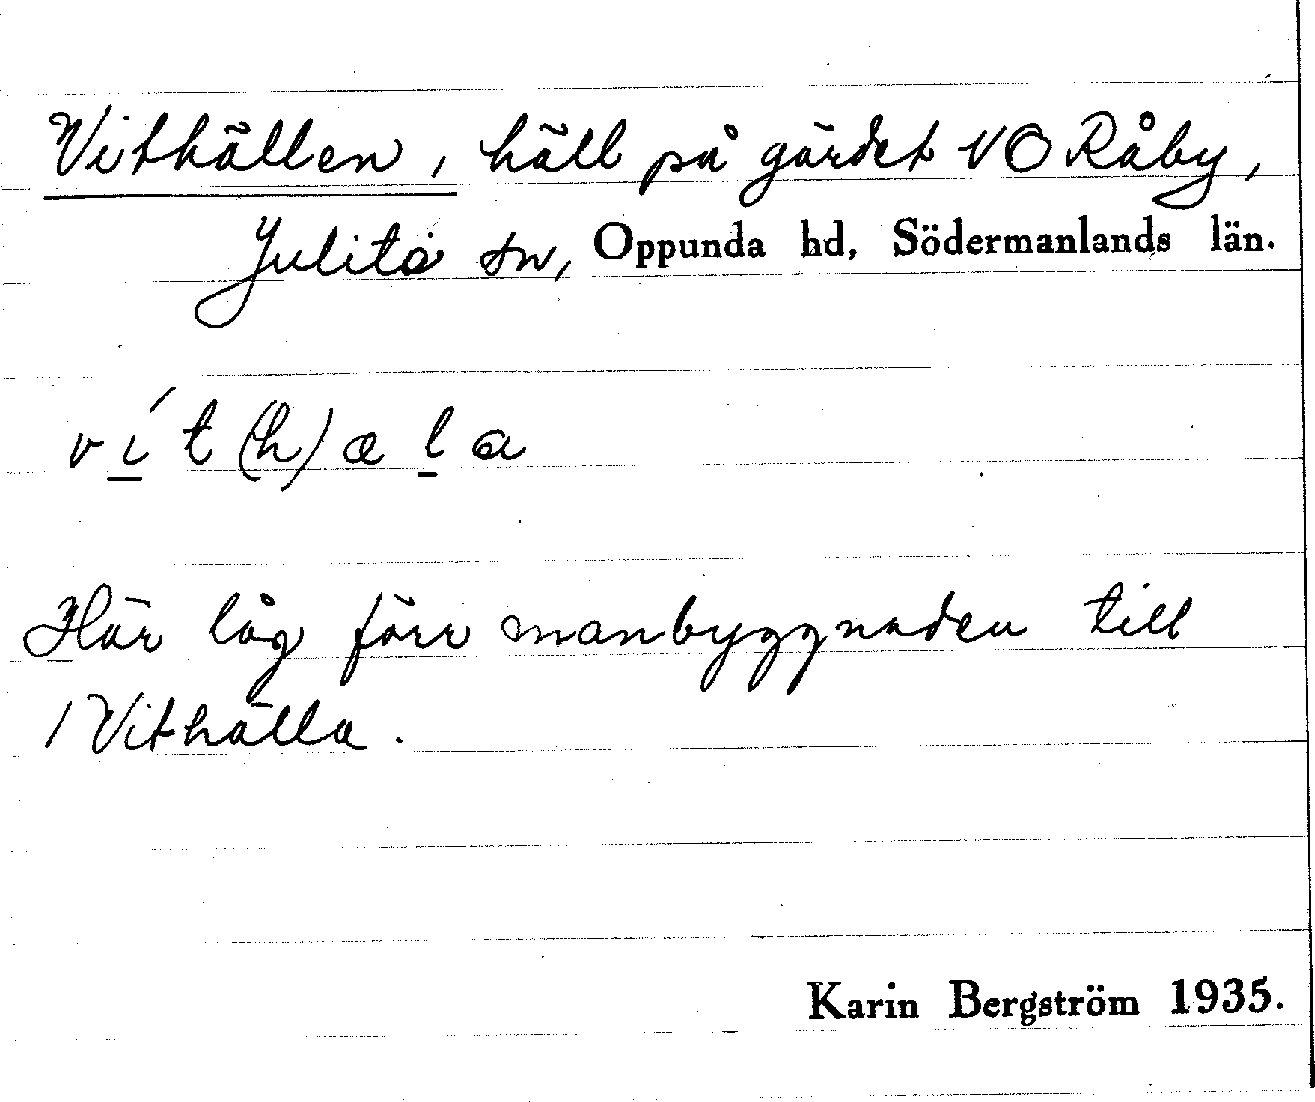 Vithällen, häll på gärdet NO Råby,
Julita sn, Oppunda hd, Södermanlands län.
v í t (h) æ l a
Här låg förr manbyggnaden till
/ Vithälla.
Karin Bergström 1935.